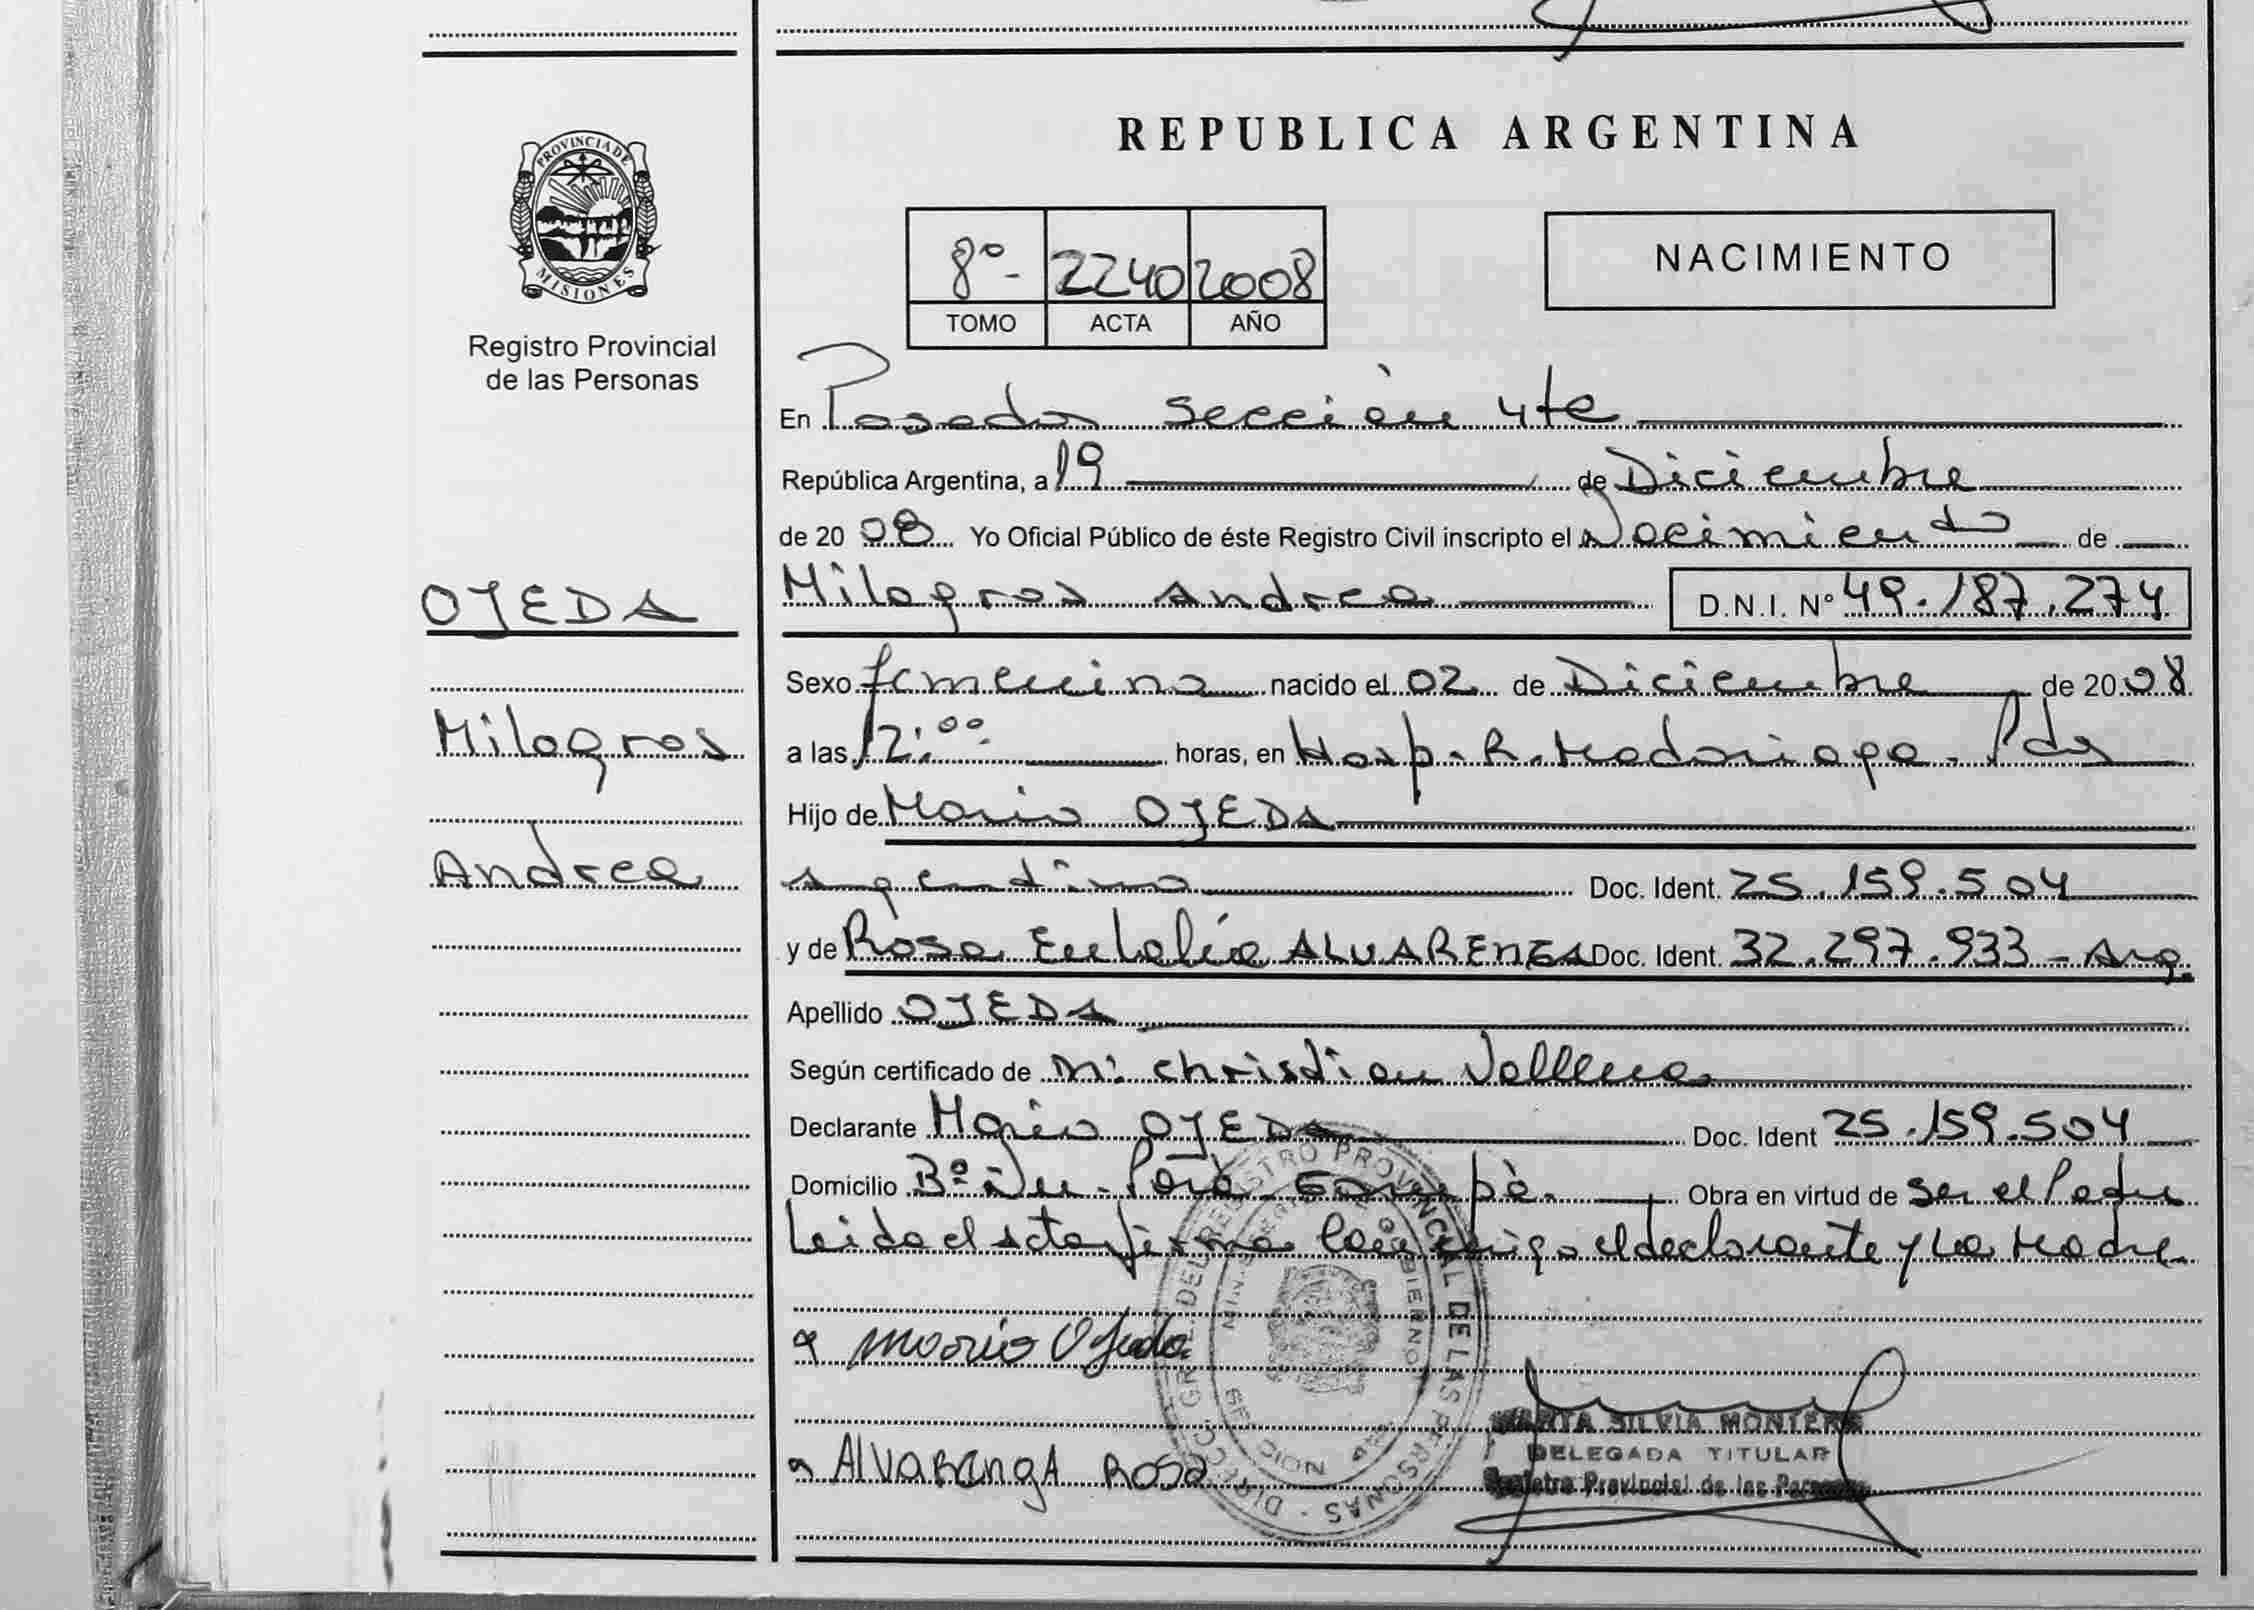 REPUBLICA ARGENTINA
PROVINCIA DE
MISIONES
Registro Provincial
de las Personas
8º- 2240 2008
TOMO ACTA AÑO
NACIMIENTO
En Posadas Sección 4ta
República Argentina, a 19 de Diciembre
de 2008 Yo Oficial Público de éste Registro Civil inscripto el Nacimiento de
OJEDA
Milagros Andrea D.N.I. Nº 49.187.274
Sexo femenino nacido el 02 de Diciembre de 2008
Milagros
a las 12:00 horas, en Hosp. R. Madariaga. Pdas
Hijo de Mario OJEDA
Andrea
argentino Doc. Ident. 25.159.504
y de Rosa Eulalia ALVARENGA Doc. Ident. 32.297.933 - Arg.
Apellido OJEDA
Según certificado de Christian
Declarante Mario OJEDA Doc. Ident 25.159.504
Domicilio Bº Ñu - Porá - Garupá. Obra en virtud de ser el Padre
Leida el acta firma conmigo el declarante y la Madre
Mario Ojeda
Alvarenga Rosa
DIRECC. GRAL. DEL REGISTRO PROVINCIAL DE LAS PERSONAS
GOBIERNO
MARTA SILVIA MONTERO
DELEGADA TITULAR
Registro Provincial de las Personas